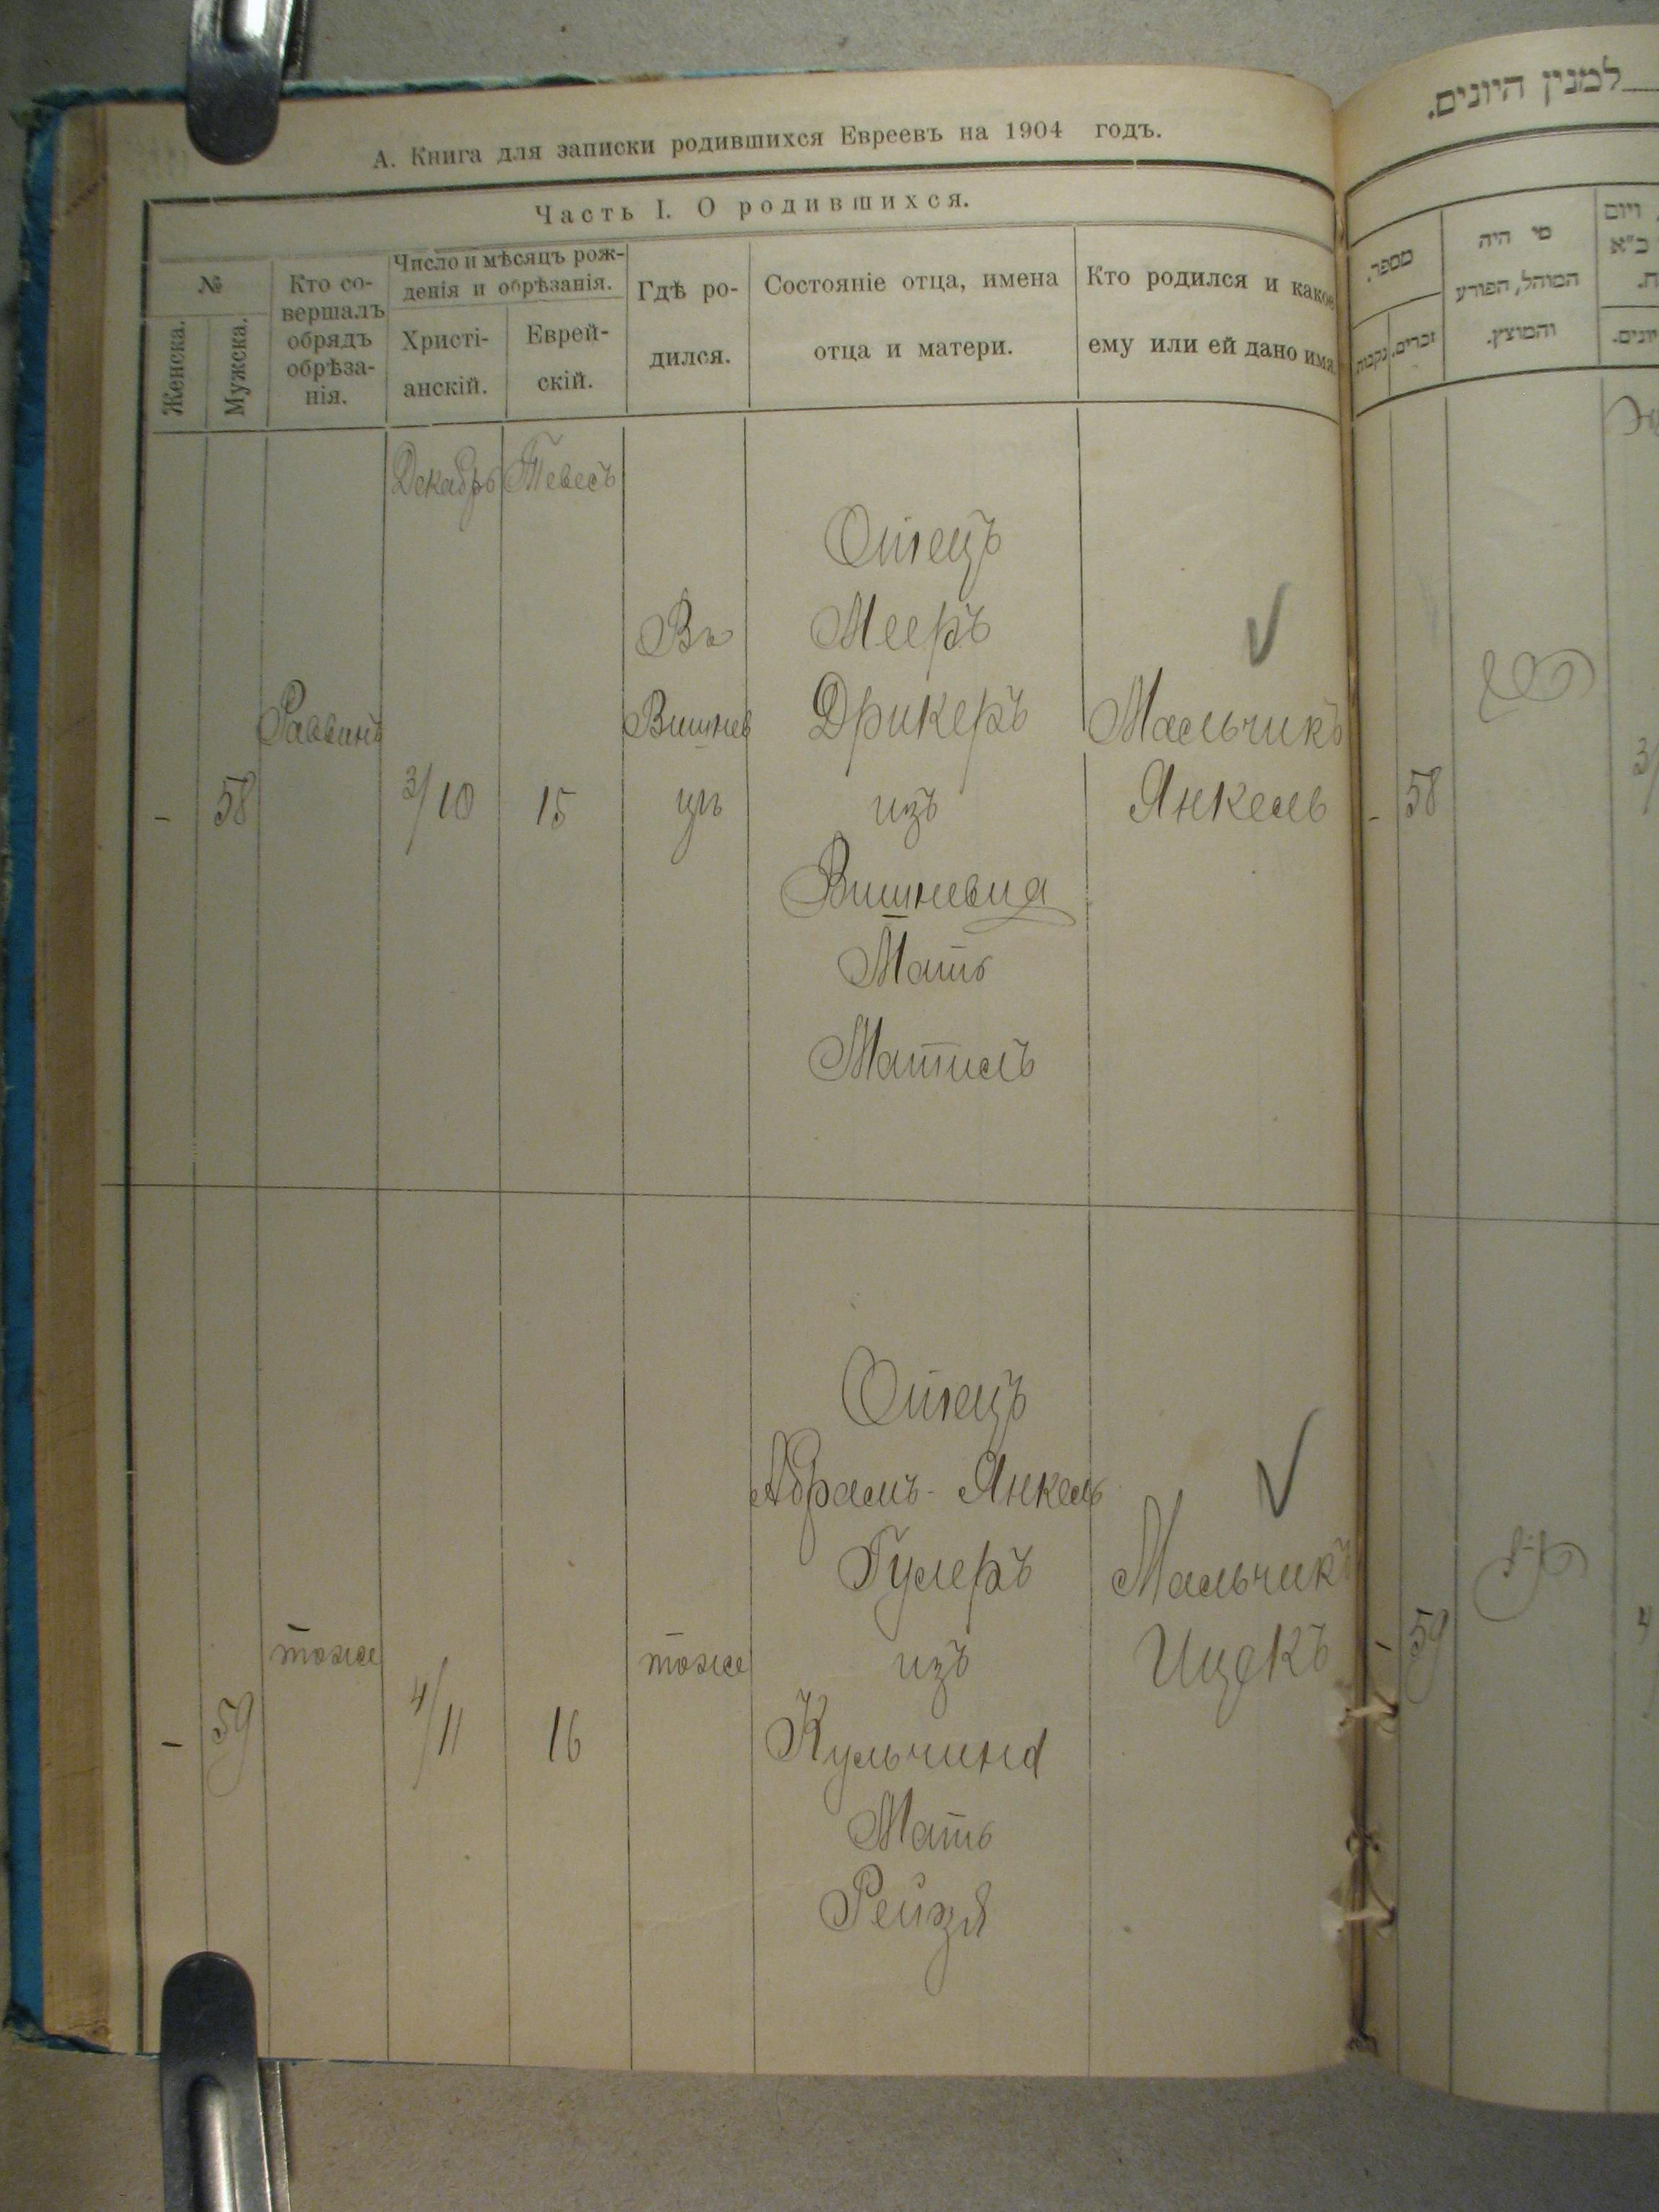 А. Книга для записки родившихся Евреевъ на 1904 годъ.
Часть I. О родившихся.
№
Женска.
Мужска.
Кто со-
вершалъ
обрядъ
обрѣза-
нія.
Число и мѣсяцъ рож-
денія и обрѣзанія.
Христі-
анскій.
Еврей-
скій.
Гдѣ ро-
дился.
Состояніе отца, имена
отца и матери.
Кто родился и какое
ему или ей дано има
Декабрь Тевесъ
-
58
Раввинъ
3/10
15
Въ
Вишнев
цѣ
Отецъ
Мееръ
Дрикеръ
изъ
Вишневца
Мать
Матиль
Мальчикъ
Янкель
-
59
тоже
4/11
16
тоже
Отецъ
Абрамъ-Янкель
Гулеръ
изъ
Кульчина
Мать
Рейзя
Мальчикъ
Ицекъ
למנין היונים.
מספר.
נקבות
זכרים.
מי היה
המוהל, הפורע
והמוצץ.
ויום
כ"א
- 58
- 59